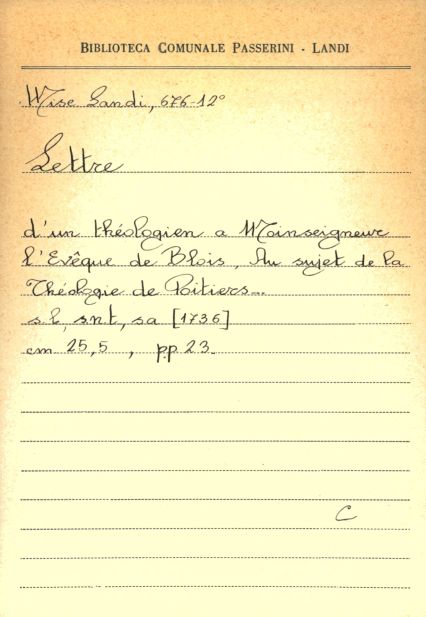 BIBLIOTECA COMUNALE PASSERINI - LANDI
Mise Landi, 676-12°
Lettre
d'un théologien a Moinseigneur
l'Evêque de Blois, Au sujet de la
Théologie de Poitiers...
s.l, s.n.t, sa [1736]
cm 25,5, pp 23.
C